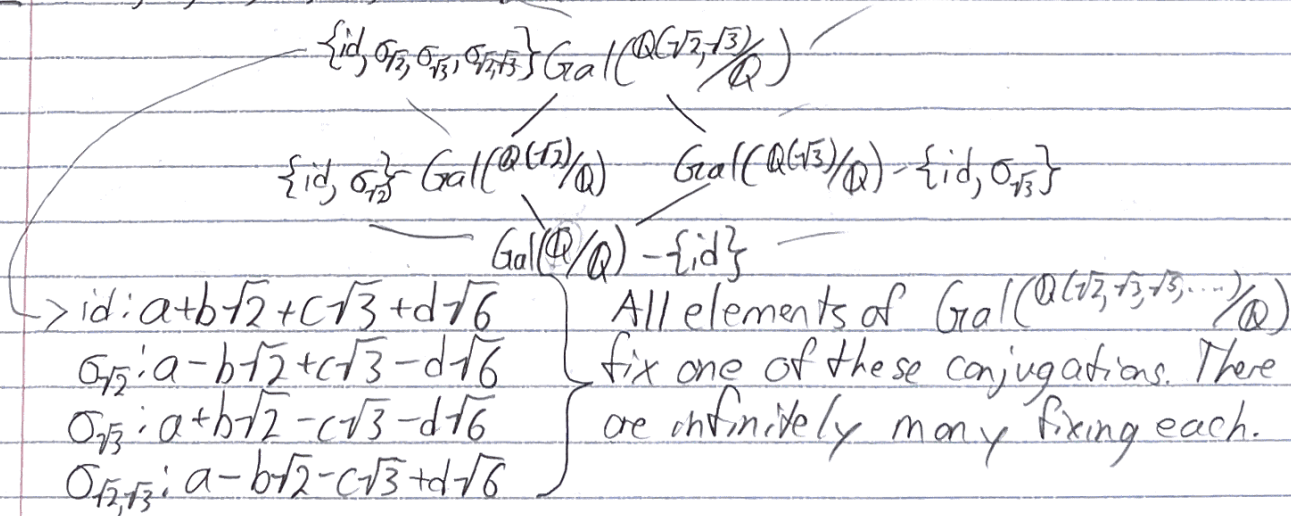 {id, σ√2, σ√3, σ√2,√3} Gal(Q(√2,√3)/Q)
{id, σ√2} - Gal(Q(√2)/Q) Gal(Q(√3)/Q) - {id, σ√3}
Gal(Q/Q) - {id}
> id: a+b√2+c√3+d√6
σ√2: a-b√2+c√3-d√6
σ√3: a+b√2-c√3-d√6
σ√2,√3: a-b√2-c√3+d√6
All elements of Gal(Q(√2,√3,√5,....)/Q)
fix one of these conjugations. There
are infinitely many fixing each.